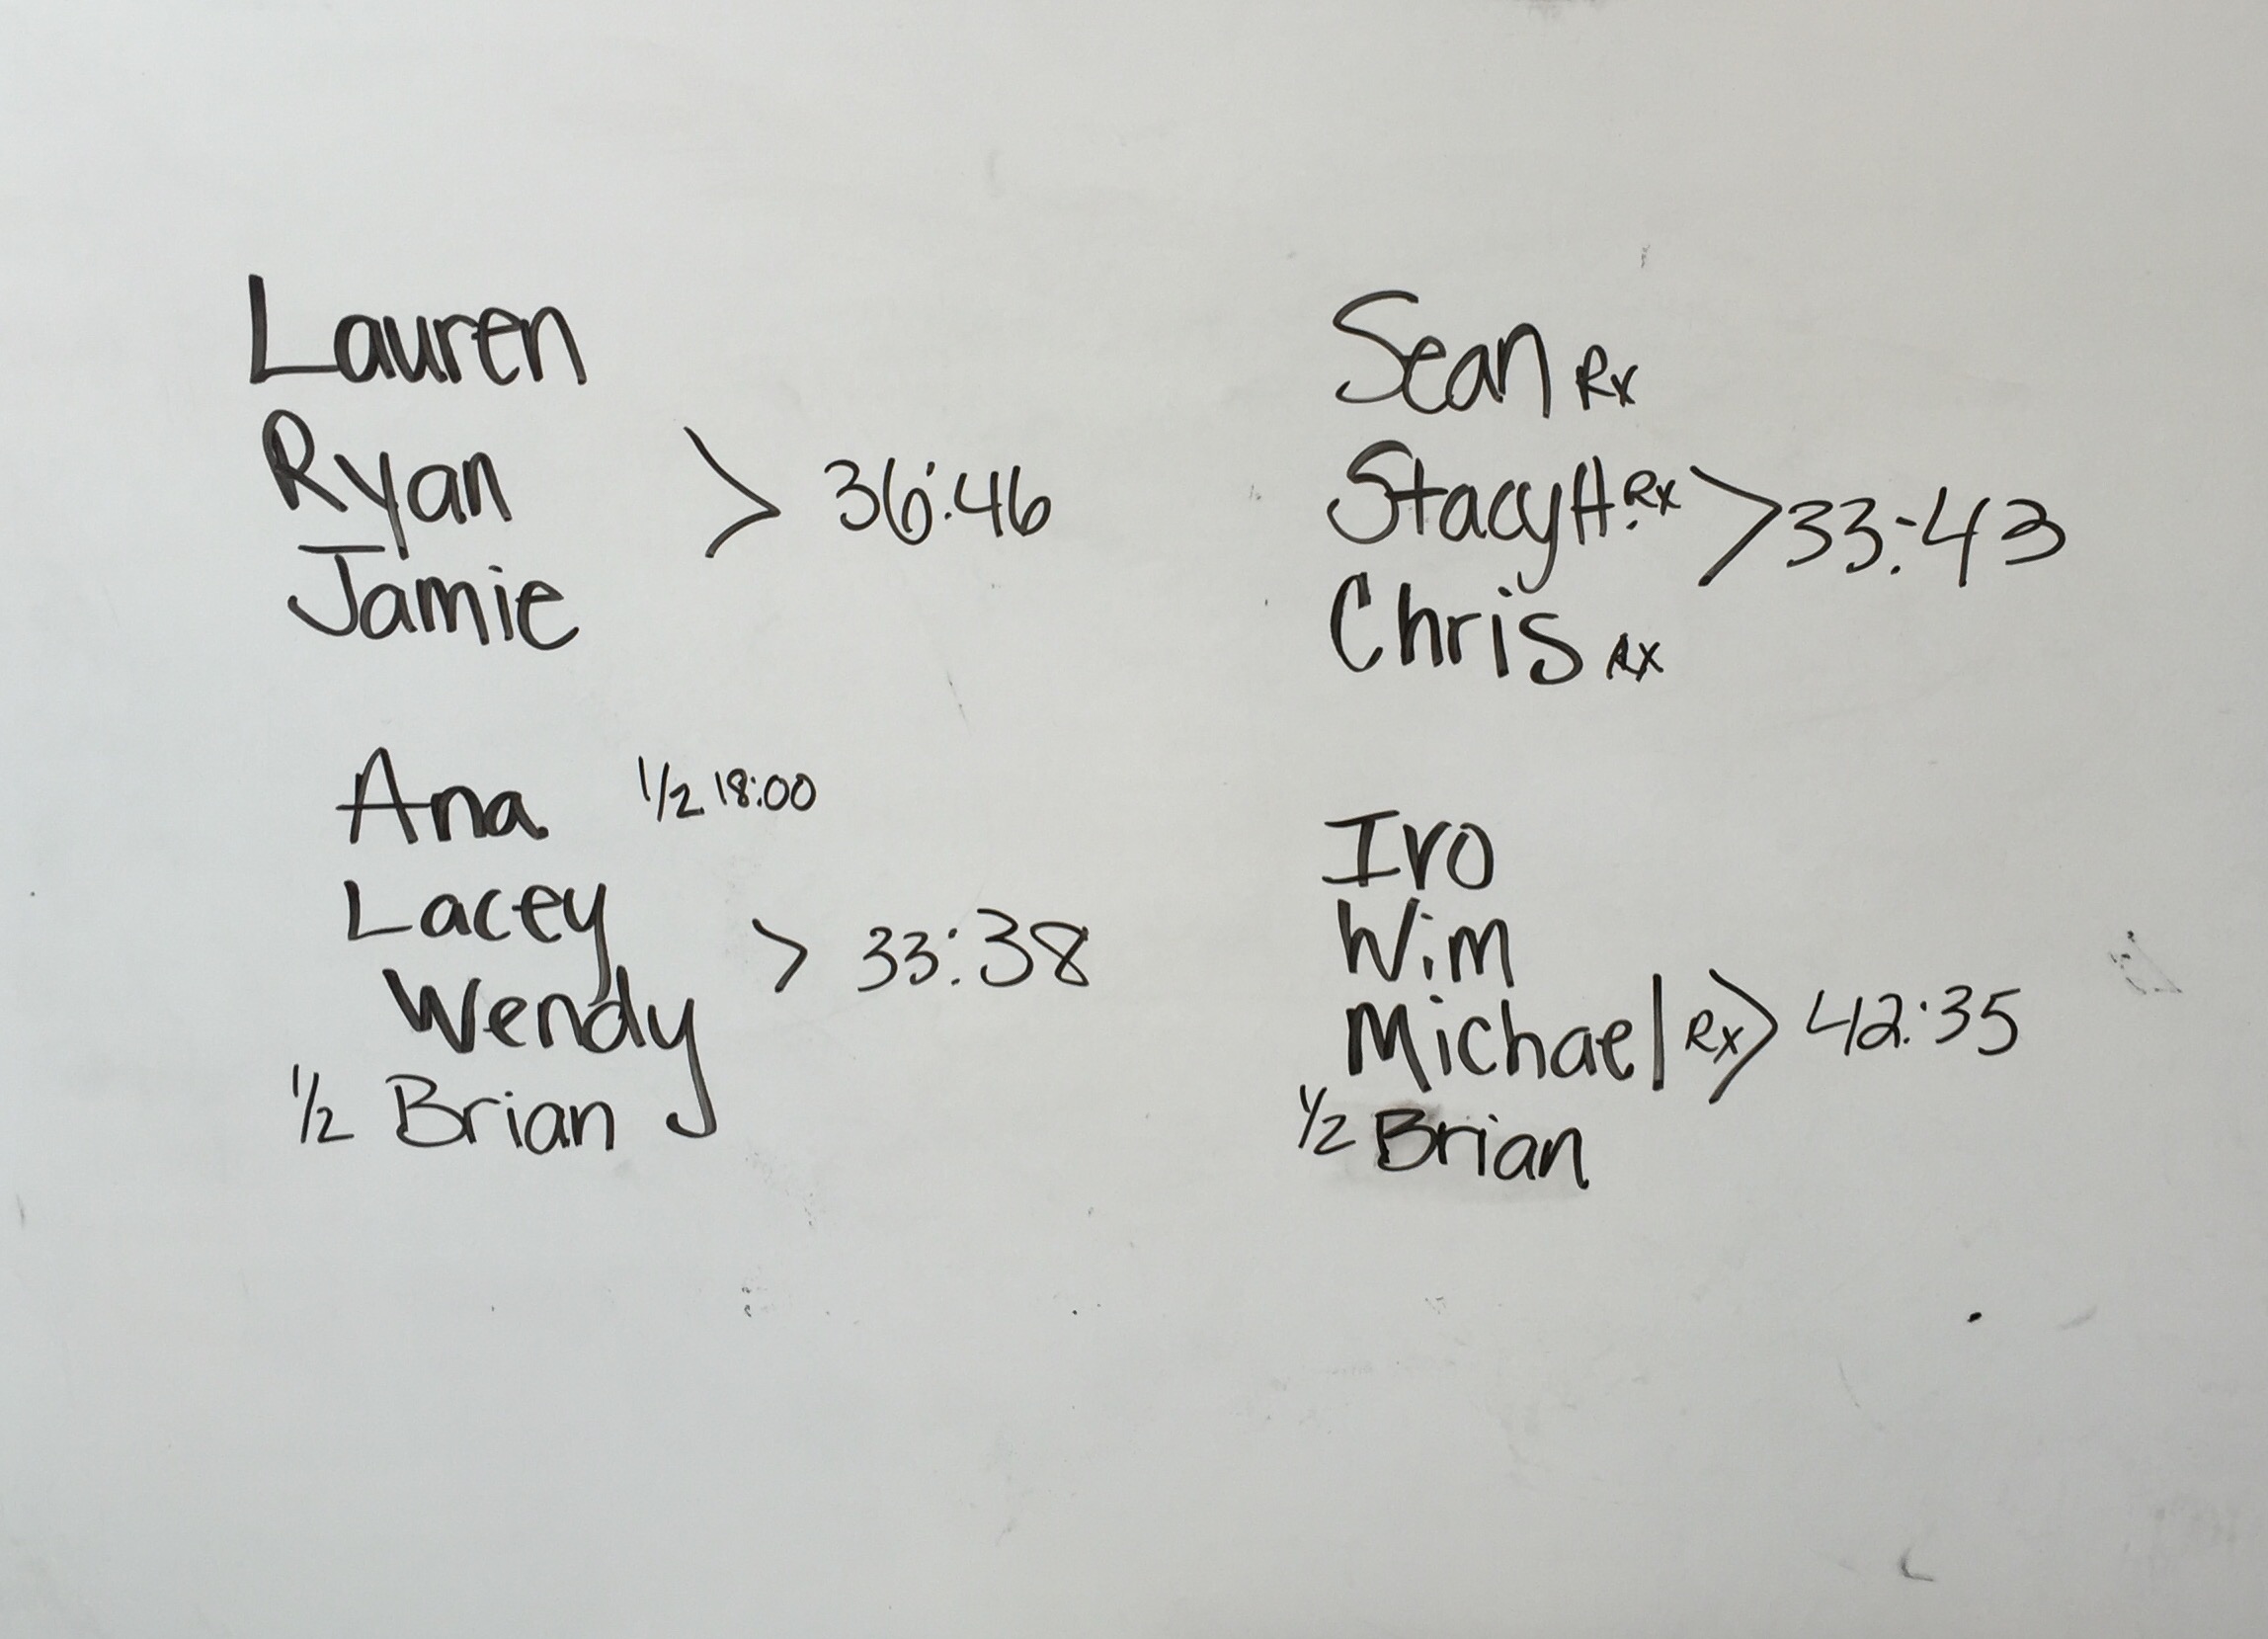 Lauren
Ryan > 36:46
Jamie
Ana 1/2 18:00
Lacey > 33:38
Wendy
1/2 Brian
Sean Rx
Stacy H. Rx > 33:43
Chris Rx
Ivo
Wim
Michael Rx > 42:35
1/2 Brian